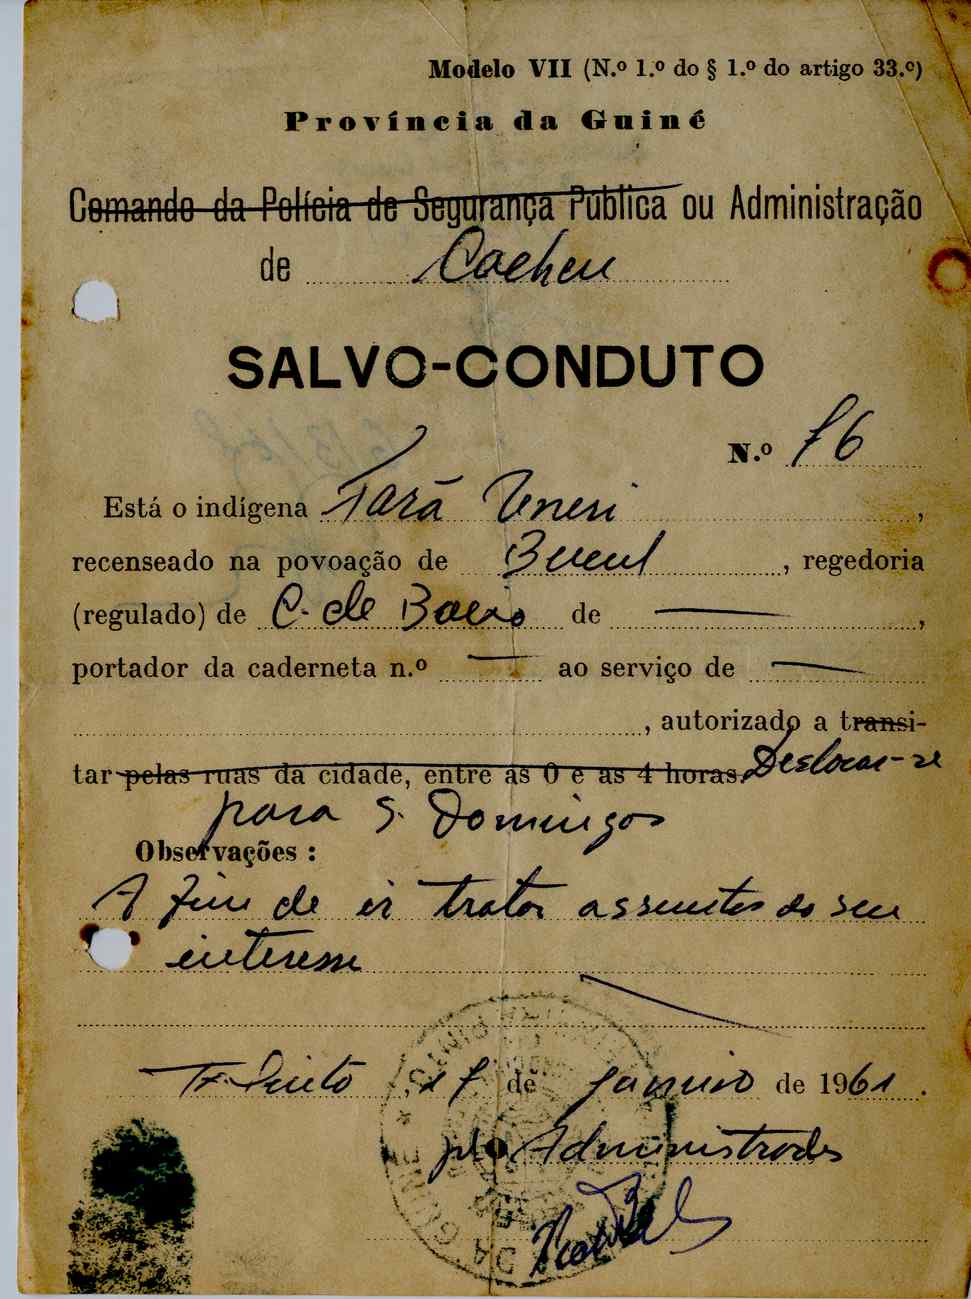 Modelo VII (N.º 1.º do § 1.º do artigo 33.º)
Província da Guiné
Comando da Polícia de Segurança Pública ou Administração
de Cacheu
SALVO-CONDUTO
N.º 76
Está o indígena Tará Uneri,
recenseado na povoação de Bucul, regedoria
(regulado) de C. de Baixo de —,
portador da caderneta n.º — ao serviço de —
, autorizado a transi-
tar pelas ruas da cidade, entre as 0 e as 4 horas. Deslocar-se
para S. Domingos
Observações :
A fim de ir tratar assuntos do seu
interesse
T. Pinto, 17 de janeiro de 1961.
plo Administrador